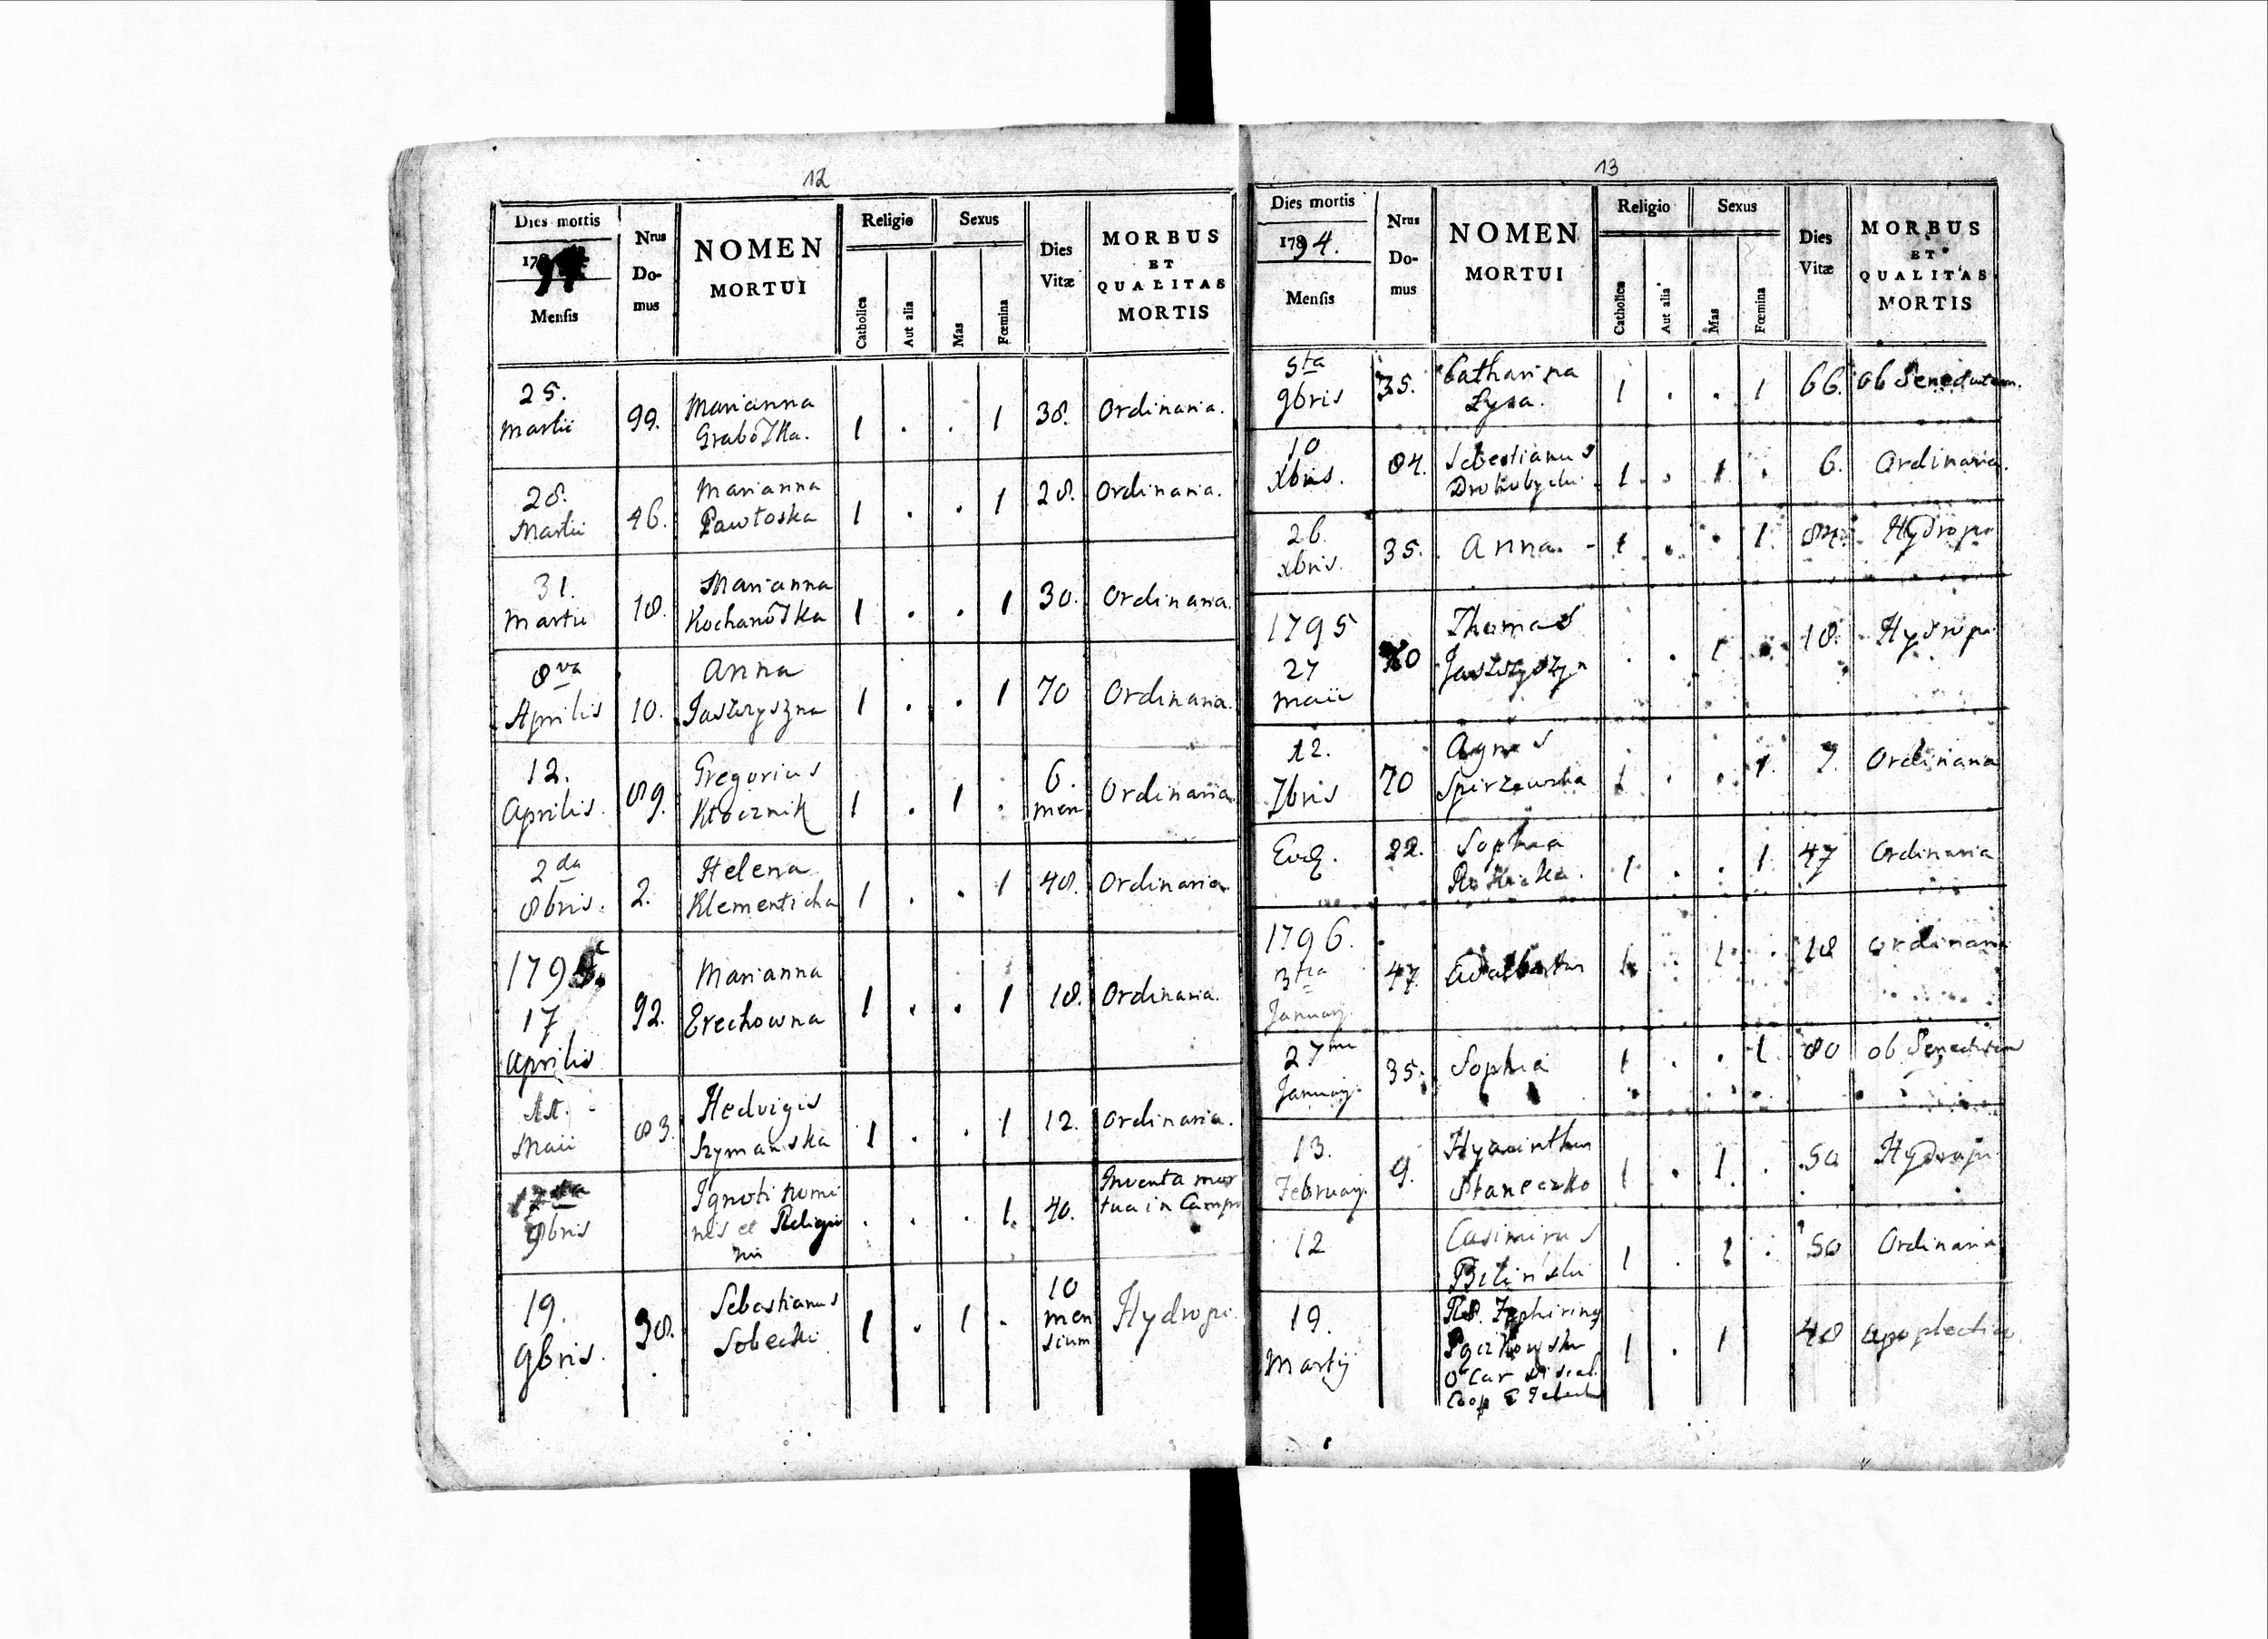 12
Dies mortis
Mensis
Nrus
Do-
mus
NOMEN
MORTUI
Religio
Catholica
Aut alia
Sexus
Mas
Fœmina
Dies
Vitæ
MORBUS
ET
QUALITAS
MORTIS
25. Martii 99. Marianna 1 . . 1 38. Ordinaria.
28. Martii 46. Marianna Pawłoska 1 . . 1 28. Ordinaria.
31. Martii 18. Marianna 1 . . 1 30. Ordinaria.
8va Aprilis 10. Anna 1 . . 1 70 Ordinaria.
12. Aprilis. 89. Gregorius Kłocznik 1 . 1 . 6. men Ordinaria.
2da 8bris. 2. Helena Klementicha 1 . . 1 48. Ordinaria.
1795. 17 Aprilis 92. Marianna Erechowna 1 . . 1 18. Ordinaria.
Maii 83. Hedvigis Szymanska 1 . . 1 12. Ordinaria.
9bris Ignoti nomi
nis et Religio
nis . . . 1. 40. Inventa mor
tua in Campo
19. 9bris. 38. Sebastianus Sobecki 1 . 1 . 10 men
sium Hydropi
13
Dies mortis
1794.
Mensis
Nrus
Do-
mus
NOMEN
MORTUI
Religio
Catholica
Aut alia
Sexus
Mas
Fœmina
Dies
Vitæ
MORBUS
ET
QUALITAS
MORTIS
5ta 9bris 35. Catharina Lysa. 1 . . 1 66. ob Senectutem.
10 Xbris. 84. Sebestianus 1 . 1 . 6. Ordinaria.
26. Xbris. 35. Anna. 1 . . 1. Hydropi
1795 27 Maii Thomas . . 1 . 18. Hydropi
12. 7bris 70 Agnes 1 . . 1. Ordinaria
22. Sophia 1 . . 1 47 Ordinaria
1796. 3tia January. 47. 1 . 1 . 18 Ordinaria
27ma January. 35. Sophia 1 . . 1 80 ob Senectutem
13. February. 9. Hyacinthus Staneczko 1 . 1 . 50 Hydropi
12 Casimirus Biliński 1 . 1 . 50 Ordinaria
19. Martij 1 . 1 48 apoplectica.